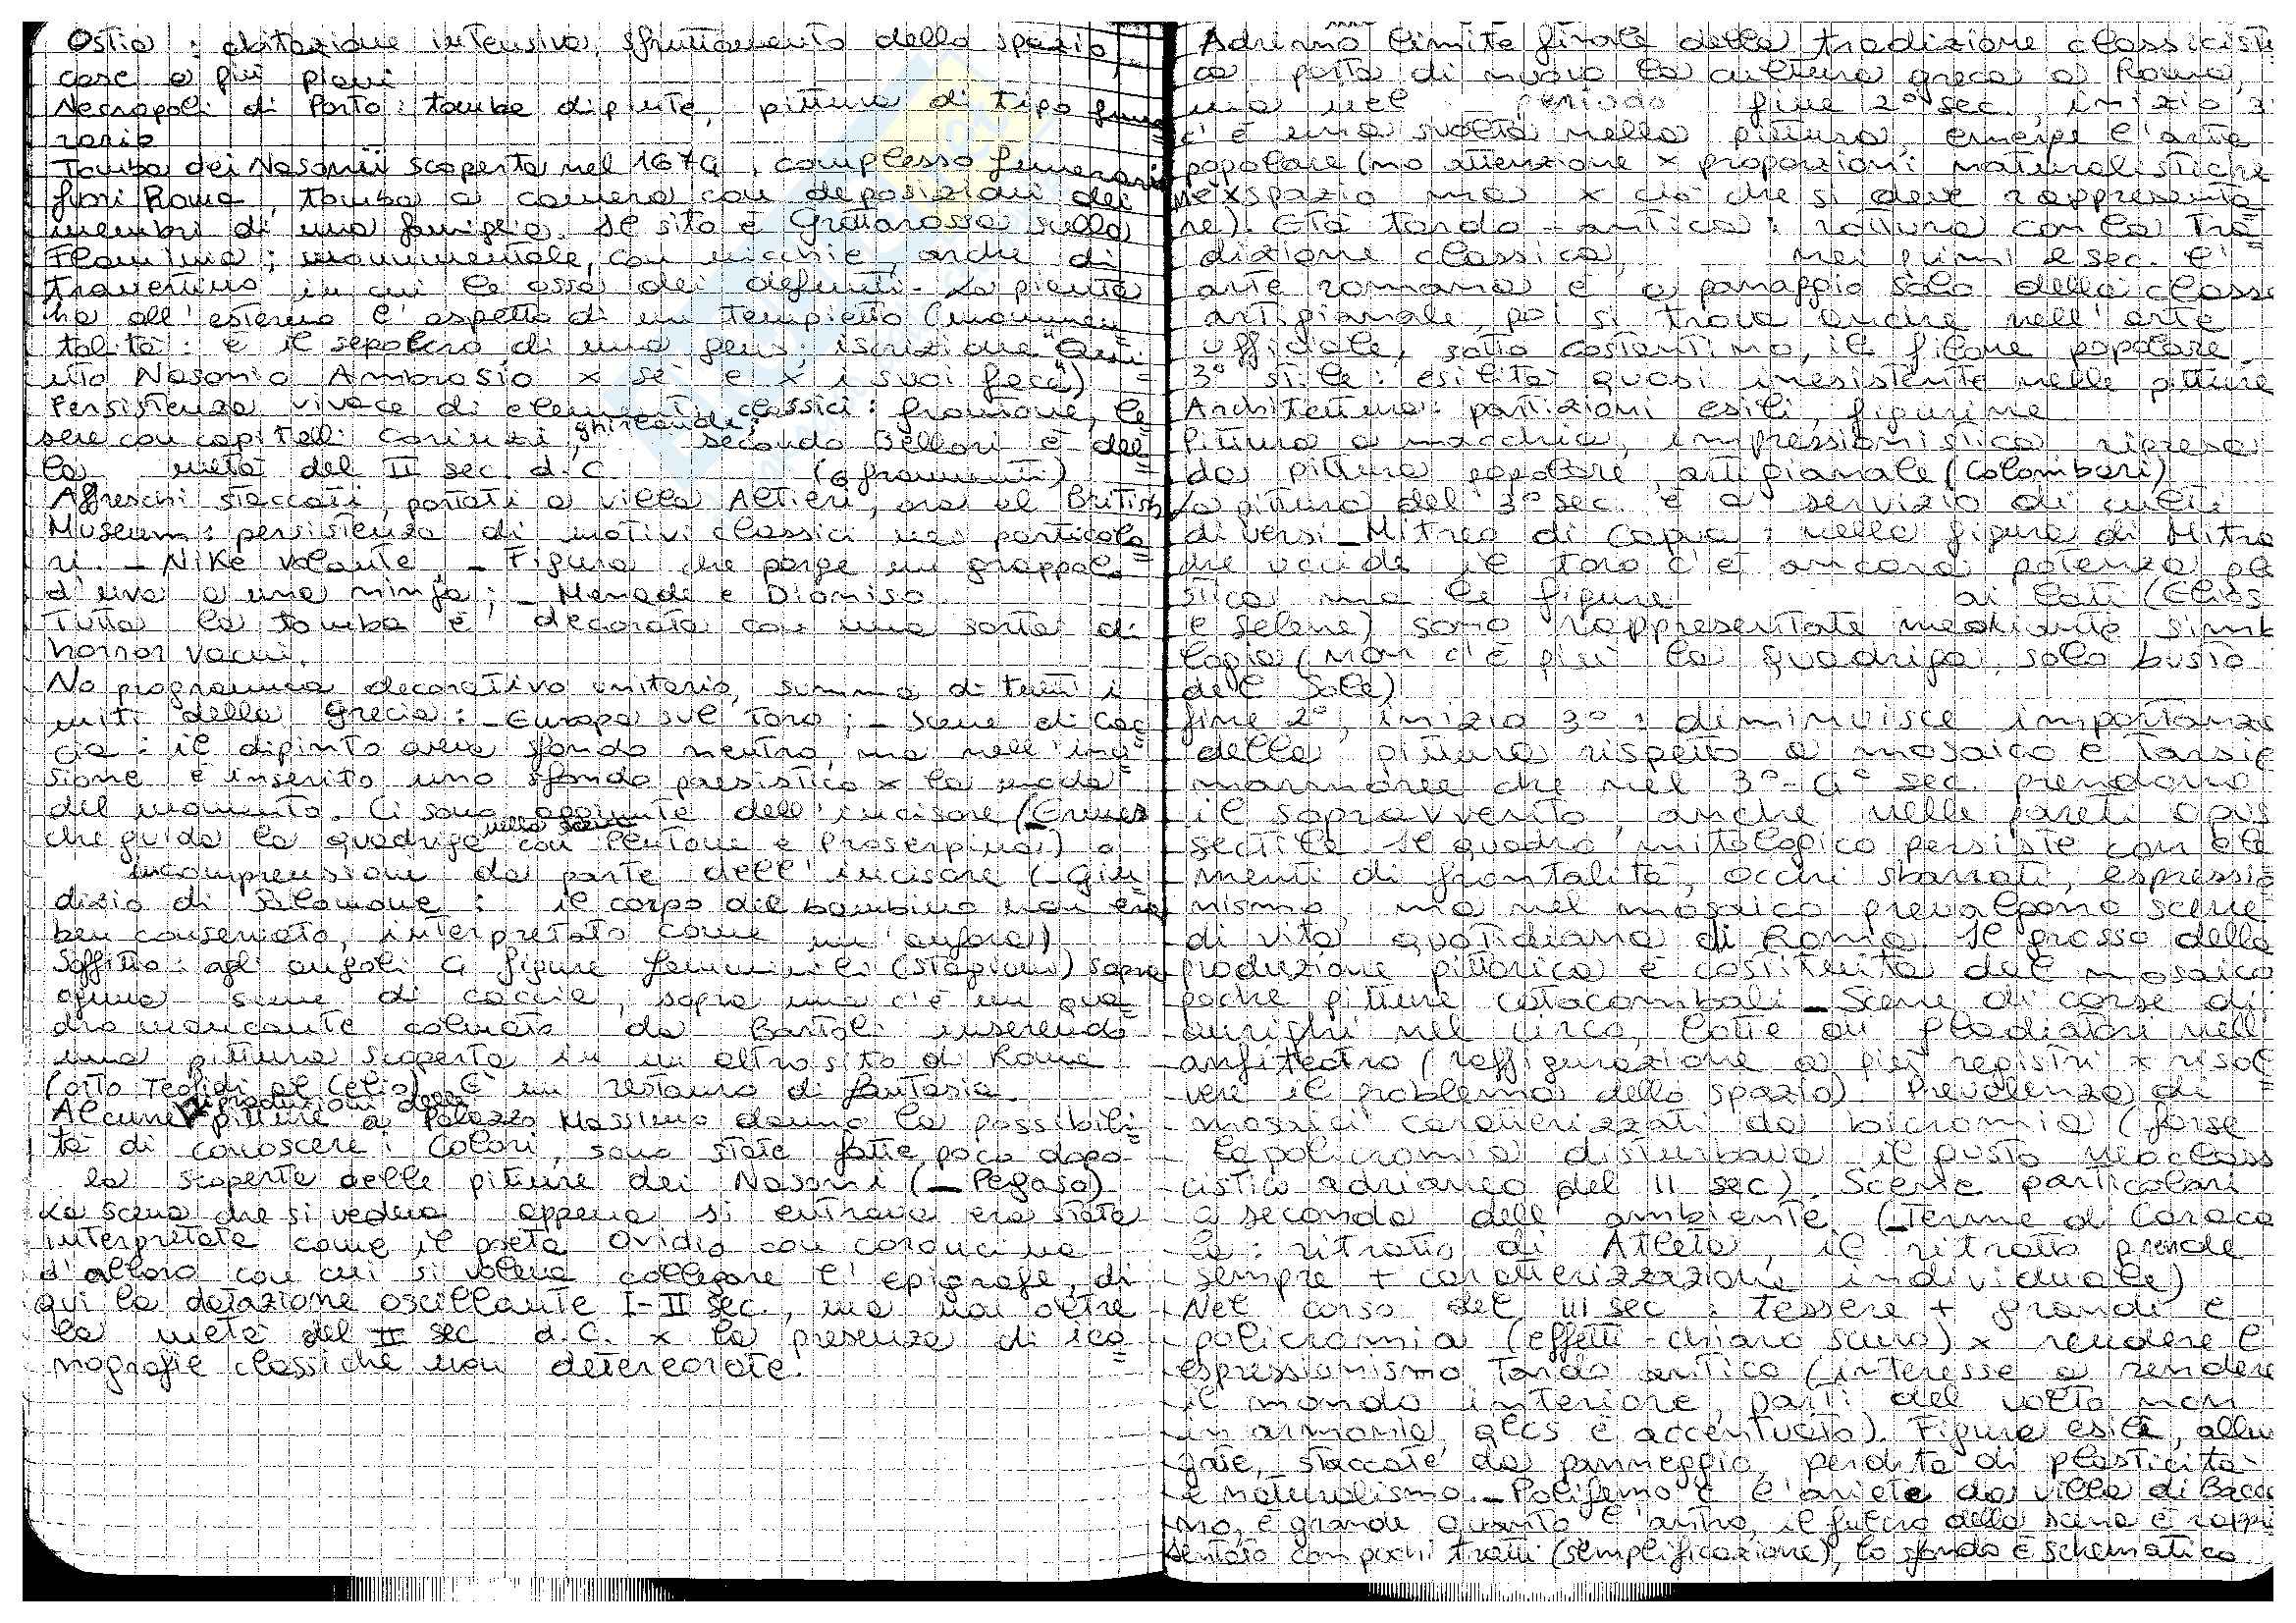 Ostia : abitazione intensiva, sfruttamento dello spazio,
case a più piani
Necropoli di Porto : tombe dipinte, pitture di tipo fune=
rario
Tomba dei Nasonii scoperta nel 1674, complesso funerario
fuori Roma, tomba a camera con deposizioni dei
membri di una famiglia. Il sito è Grottarossa sulla
Flaminia ; monumentale, con nicchie, arche di
travertino in cui le ossa dei defunti. La pianta
ha all'esterno l'aspetto di un tempietto (monumen=
talità : è il sepolcro di una gens ; iscrizione "Quin
uto Nasonio Ambrosio x sé e x i suoi fece")
Persistenza vivace di elementi classici : frontone, le
sene con capitelli corinzi, ghirlande ; secondo Bellori è del=
la metà del II sec d.C. (6 frammenti)
Affreschi staccati, portati a villa Altieri, ora al British
Museum : persistenza di motivi classici nei particola=
ri. - Nike volante - Figura che porge un grappolo
d'uva a una ninfa ; - Menade e Dioniso
Tutta la tomba è decorata con una sorta di
horror vacui.
No programma decorativo unitario, summa di tutti i
miti della Grecia : - Europa sul toro ; - Scene di cac
cia : il dipinto aveva sfondo neutro, ma nell'inci=
sione è inserito uno sfondo paesistico x la moda
del momento. Ci sono aggiunte dell'incisore (- Ermes
che guida la quadriga nella scena con Plutone e Proserpina) o
incomprensioni da parte dell'incisore (- Giu
dizio di Salomone : il corpo del bambino non era
ben conservato, interpretato come un'anfora)
Soffitto : agli angoli 4 figure femminili (stagioni) sopra
ognuna scene di caccia, sopra una c'è un qua=
dro mancante colmato da Bartoli inserendo
una pittura scoperta in un altro sito di Roma
(orto Teofili al Celio). È un restauro di fantasia.
Alcune riproduzioni delle pitture a Palazzo Massimo danno la possibili=
tà di conoscere i colori, sono state fatte poco dopo
la scoperta delle pitture dei Nasoni (- Pegaso)
La scena che si vedeva appena si entrava era stata
interpretata come il poeta Ovidio con coroncina
d'alloro con cui si voleva collegare l'epigrafe, di
qui la datazione oscillante I-II sec., ma non oltre
la metà del II sec d.C. x la presenza di ico=
nografie classiche non deteriorate.
Adriano limite finale della tradizione classicisti
ca porta di nuovo la cultura greca a Roma,
ma nel periodo fine 2° sec., inizio 3°
c'è una svolta nella pittura, emerge l'arte
popolare (no attenzione x proporzioni naturalistiche
né x spazio ma x ciò che si deve rappresenta
re). Età tardo-antica : rottura con la tra=
dizione classica, nei primi 2 sec. l'
arte romana è a panaggio solo della classe
artigianale, poi si trova anche nell'arte
ufficiale, sotto Costantino, il filone popolare.
3° stile : esilità quasi inesistente nelle pitture
Architettura : partizioni esili, figurine
Pittura a macchia, impressionistica ripresa
da pittura popolare, artigianale (Colombari)
La pittura del 3° sec. è a servizio di culti
diversi - Mitreo di Capua : nella figura di Mitra
che uccide il toro c'è ancora potenza pla
stica ma le figure ai lati (Elios
e Selene) sono rappresentate mediante simb
logia (non c'è più la quadriga, solo busto
del Sole)
fine 2°, inizio 3° : diminuisce importanza
della pittura rispetto a mosaico e tarsie
marmoree che nel 3°-4° sec. prendono
il sopravvento, anche nelle pareti opus
sectile. Il quadro mitologico persiste con ele
menti di frontalità, occhi sbarrati, espressio
nismo, ma nel mosaico prevalgono scene
di vita quotidiana di Roma. Il grosso della
produzione pittorica è costituita dal mosaico
poche pitture catacombali - Scene di corse di
aurighi nel circo, lotte di gladiatori nell'
anfiteatro (raffigurazione a più registri x risol=
vere il problema dello spazio). Prevalenza di
mosaici caratterizzati da bicromia (forse
la policromia disturbava il gusto neoclass
cistico adrianeo del II sec). Scene particolari
a seconda dell'ambiente (- Terme di Caracal
la : ritratto di Atleta, il ritratto prende
sempre + caratterizzazione individuale)
Nel corso del III sec : tessere + grandi e
policromia (effetti chiaro scuro) x rendere l'
espressionismo tardo antico (interesse a rendere
il mondo interiore, parti del volto non
in armonia, qlcs è accentuato). Figure esili, allun
gate, staccate da panneggio, perdita di plasticità
e naturalismo. - Polifemo e l'ariete da villa di Bacca
no, è grande quanto l'antro, il fulcro della scena è rappre
sentato con pochi tratti (semplificazione), lo sfondo è schematico